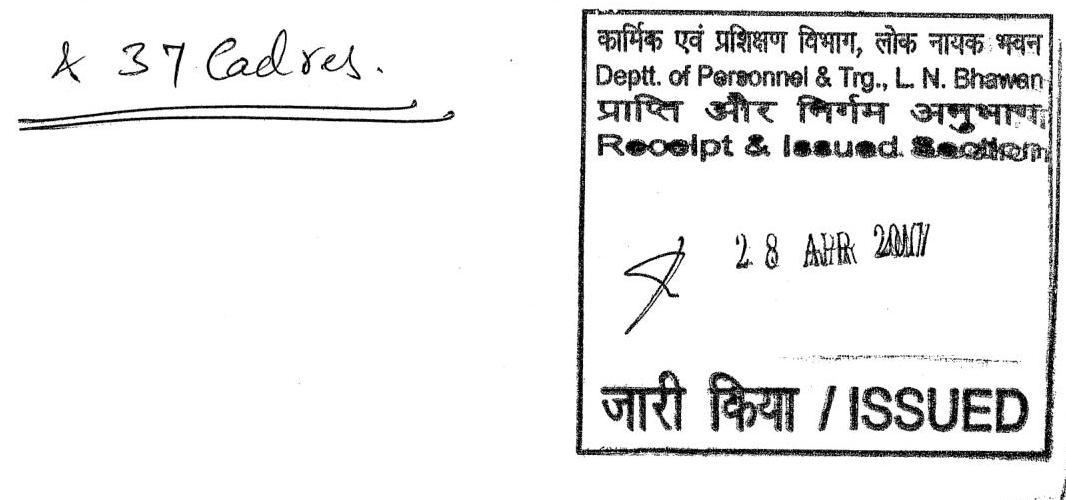 & 37 Cadres.
कार्मिक एवं प्रशिक्षण विभाग, लोक नायक भवन
Deptt. of Personnel & Trg., L. N. Bhawan
प्राप्ति और निर्गम अनुभाग
Receipt & Issued Section
28 APR 2017
जारी किया / ISSUED